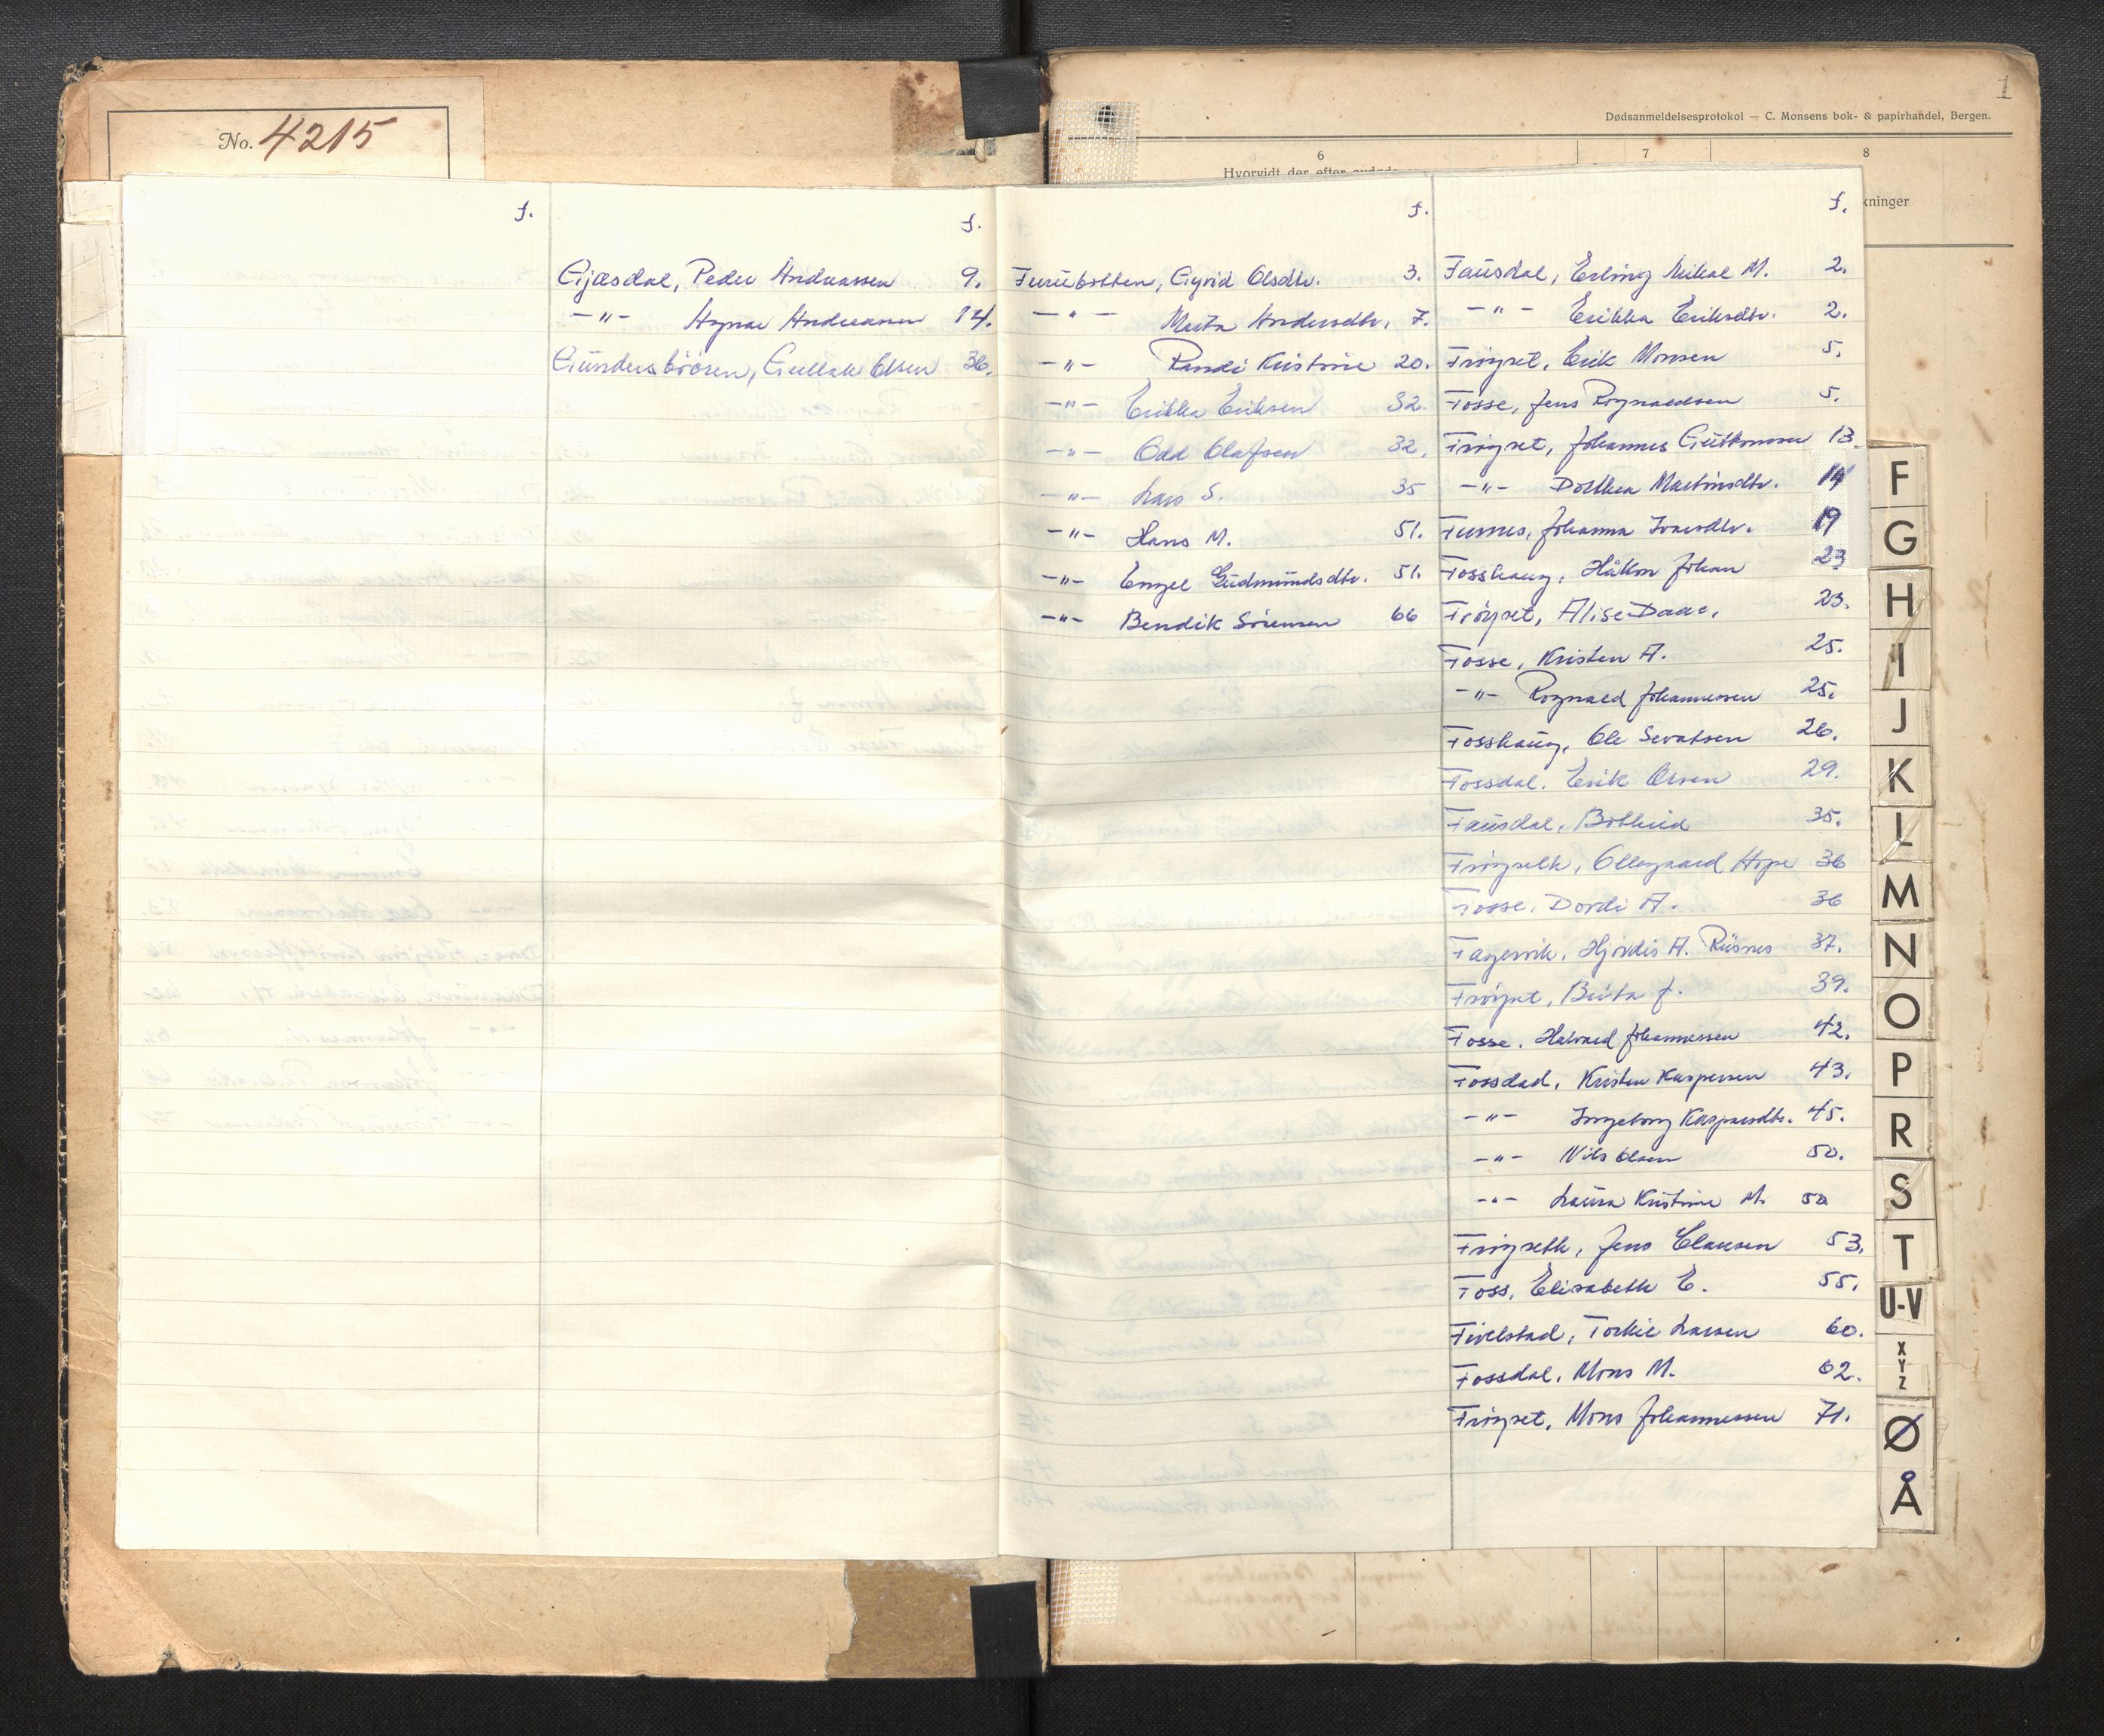 No. 4215
1
Dødsanmeldelsesprotokol — C. Monsens bok- & papirhandel, Bergen.
6 7 8
Hvorvidt der efter avdøde
kninger
f.
f.
Gjæsdal, Peder Andreassen 9.
—"— Andreassen 14.
Gullak Olsen 36.
f.
Furebotten, Sigrid Olsdtr. 3.
—"— Marta Andersdtr. 7.
—"— Randi Kristine 20.
—"— Erikka Eriksen 32.
—"— Odd Olafsen 32.
—"— Lars S. 35
—"— Hans M. 51.
—"— Engel Gudmundsdtr. 51.
—"— Bendik Sørensen 66
f.
Fausdal, Erling Mikal M. 2.
—"— Erikka Eriksdtr. 2.
Frøyset, Erik Monsen 5.
Fosse, Jens Rognaldsen 5.
Frøyset, Johannes Guttormsen 13.
—"— Dorthea Martinsdtr. 14
Furnes, Johanna Ivarsdtr. 19
Fosshaug, Håkon Johan 23
Frøyset, Alise Daae. 23.
Fosse, Kristen A. 25.
—"— Rognald Johannessen 25.
Fosshaug, Ole Sevatsen 26.
Fossdal, Erik Olsen 29.
Fausdal, Bothild 35.
Frøyseth, Ollegaard Hope 36
Fosse, Dordi A. 36
Fagervik, Hjørdis A. Risnes 37.
Frøyset, Brita J. 39.
Fosse, Halvard Johannessen 42.
Fossdal, Kristen Kaspersen 43.
—"— Ingeborg Kaspersdtr. 45.
—"— Nils Olsen 50.
—"— Laura Kristine M. 50
Frøyseth, Jens Clausen 53.
Foss, Elisabeth E. 55.
Fivelstad, Torkil Larsen 60.
Fossdal, Mons M. 62.
Frøyset, Mons Johannessen 71.
F
G
H
I
J
K
L
M
N
O
P
R
S
T
U-V
X
Y
Z
Ø
Å